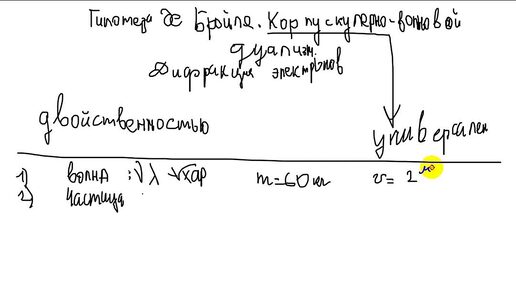 Гипотеза де Бройля. Корпускулярно-волновой
дуализм.
Дифракция электронов
двойственностью
универсален
1) волна : ν λ vхар m=60 кг v= 2 м/с
2) частица